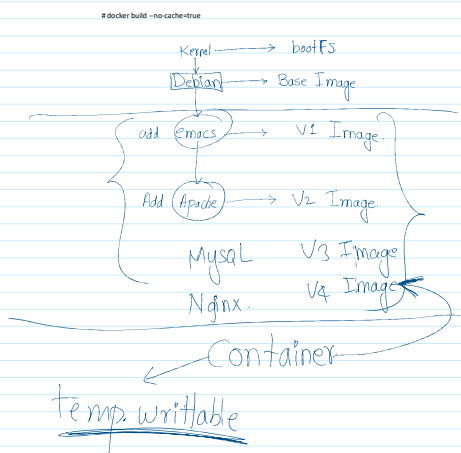 # docker build --no-cache=true
Kernel bootFS
Debian Base Image
add emacs V1 Image.
Add Apache V2 Image.
Mysql V3 Image
Nginx. V4 Image
Container
temp. writtable